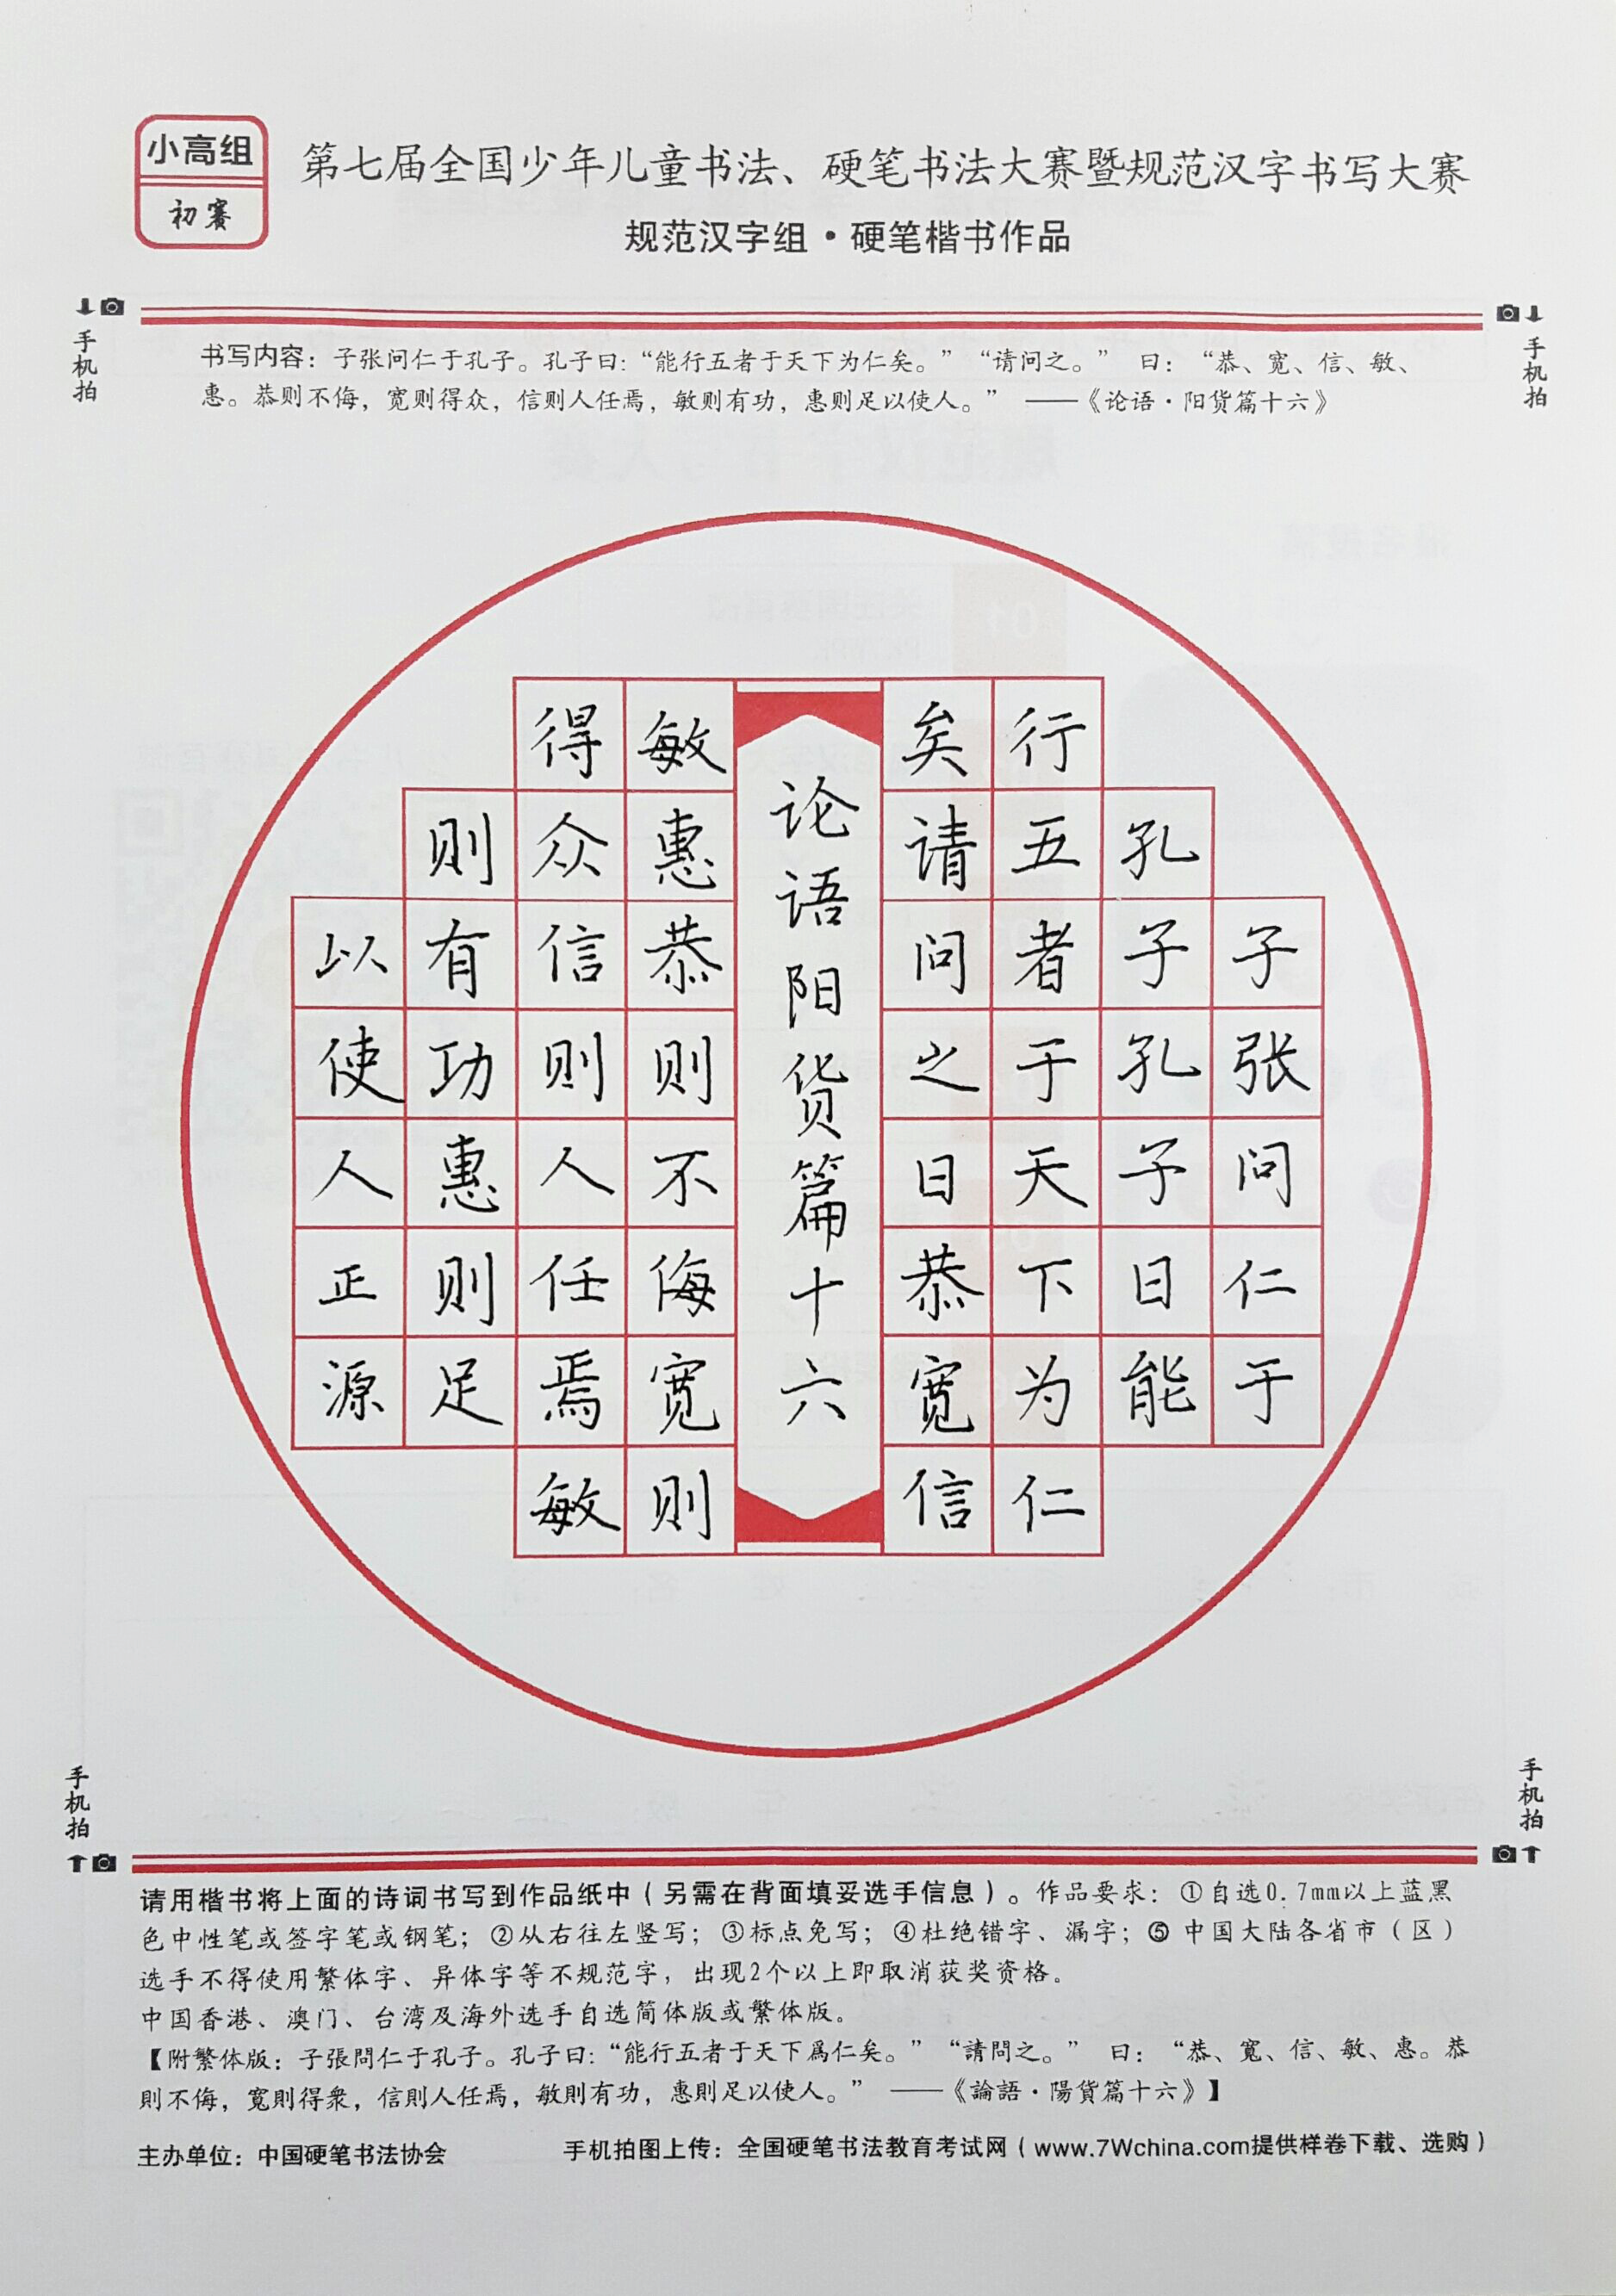 小高组
初赛
第七届全国少年儿童书法、硬笔书法大赛暨规范汉字书写大赛
规范汉字组·硬笔楷书作品
手机拍
手机拍
书写内容：子张问仁于孔子。孔子曰：“能行五者于天下为仁矣。”“请问之。” 曰：“恭、宽、信、敏、
惠。恭则不侮，宽则得众，信则人任焉，敏则有功，惠则足以使人。” ——《论语·阳货篇十六》
子张问仁于
孔子孔子曰能
行五者于天下为仁
矣请问之曰恭宽信
论语阳货篇十六
敏惠恭则不侮宽则
得众信则人任焉敏
则有功惠则足
以使人正源
手机拍
手机拍
请用楷书将上面的诗词书写到作品纸中（另需在背面填妥选手信息）。作品要求：①自选0.7mm以上蓝黑
色中性笔或签字笔或钢笔；②从右往左竖写；③标点免写；④杜绝错字、漏字；⑤中国大陆各省市（区）
选手不得使用繁体字、异体字等不规范字，出现2个以上即取消获奖资格。
中国香港、澳门、台湾及海外选手自选简体版或繁体版。
【附繁体版：子張問仁于孔子。孔子曰：“能行五者于天下爲仁矣。”“請問之。” 曰：“恭、寬、信、敏、惠。恭
則不侮，寬則得衆，信則人任焉，敏則有功，惠則足以使人。” ——《論語·陽貨篇十六》】
主办单位：中国硬笔书法协会 手机拍图上传：全国硬笔书法教育考试网（www.7Wchina.com提供样卷下载、选购）